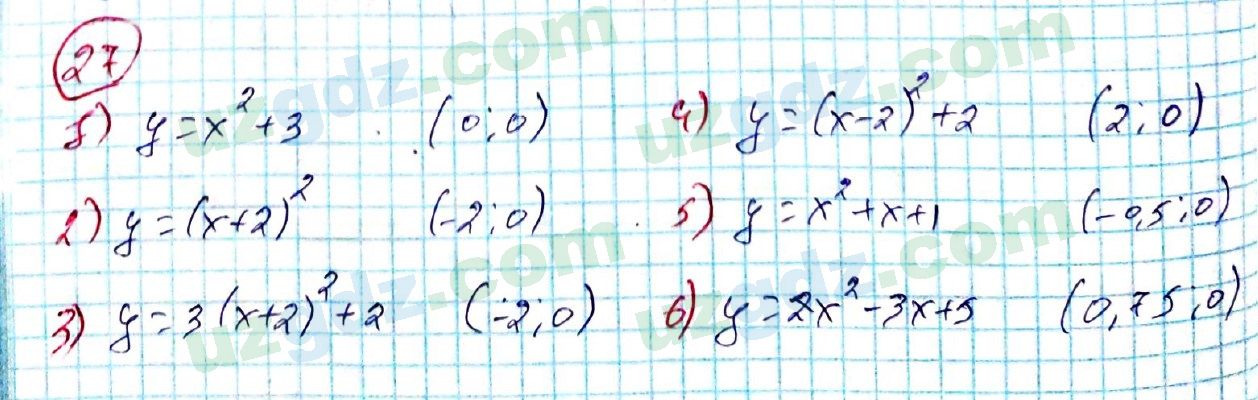 27
1) y = x² + 3 (0; 0) 4) y = (x-2)² + 2 (2; 0)
2) y = (x+2)² (-2; 0) 5) y = x² + x + 1 (-0,5; 0)
3) y = 3(x+2)² + 2 (-2; 0) 6) y = 2x² - 3x + 5 (0,75; 0)
uzgdz.com
uzgdz.com
uzgdz.com
uzgdz.com